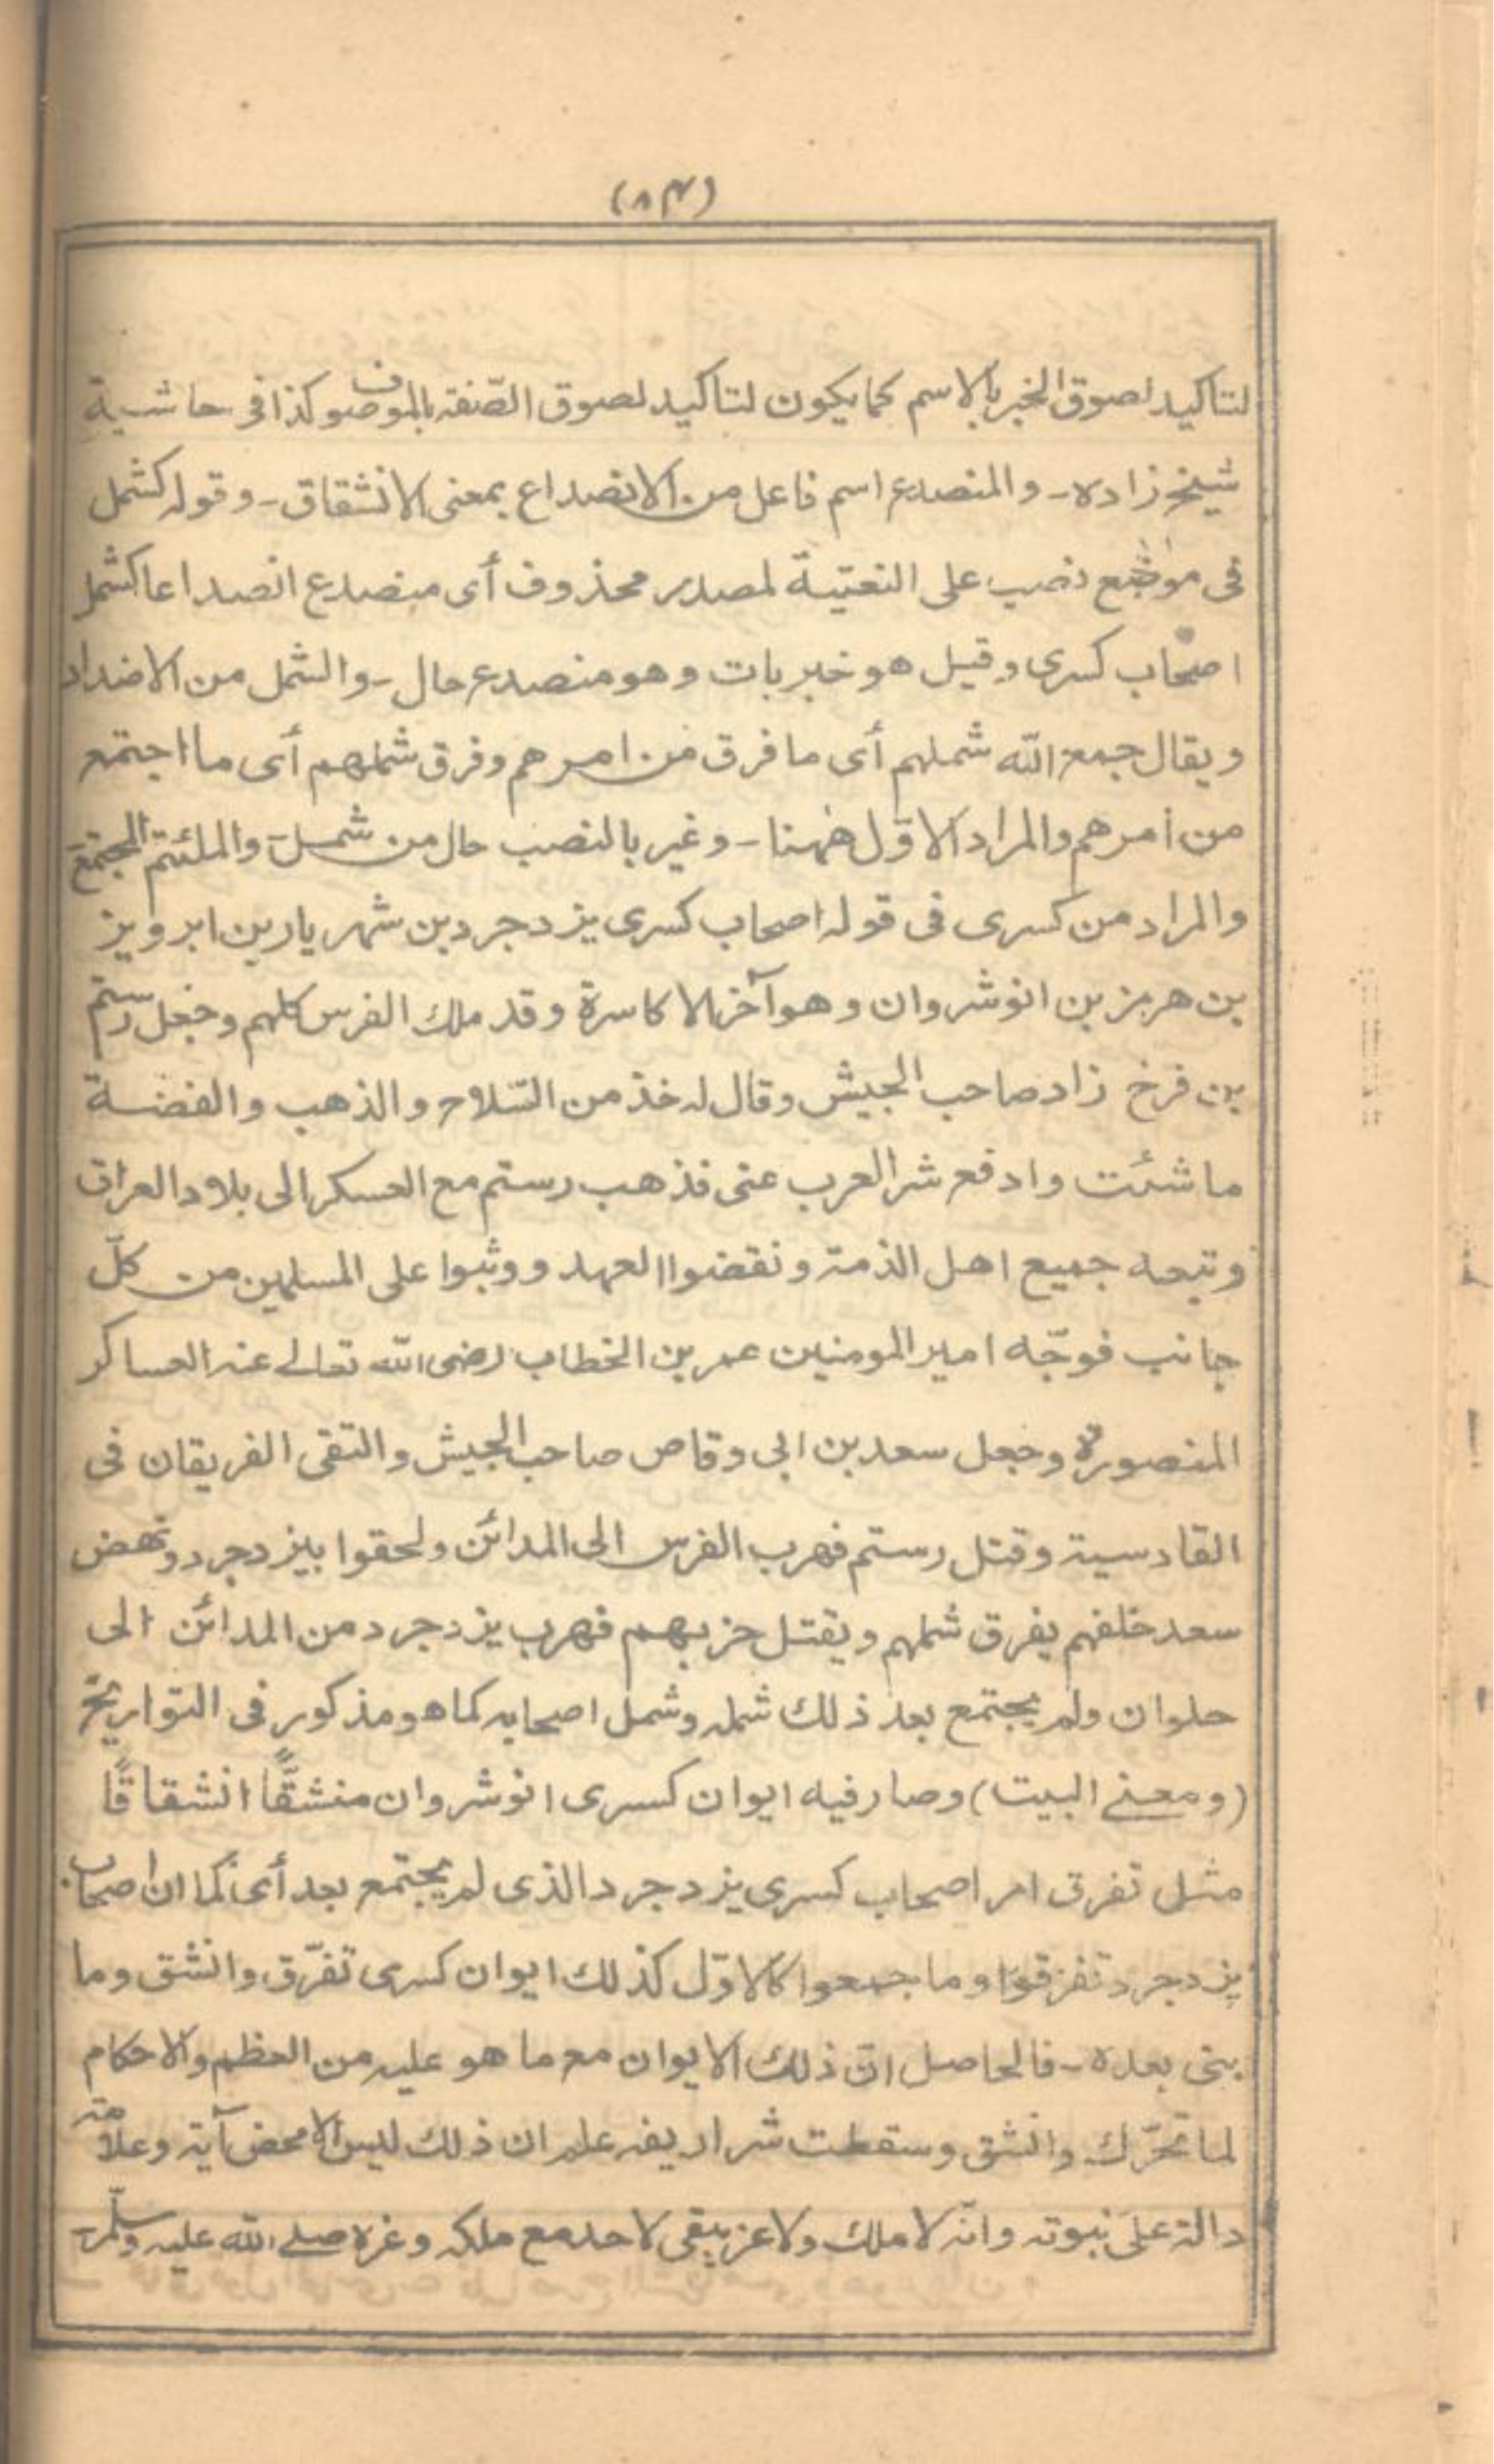 (٨٤)
لتاكيد لصوق الخبر بالاسم كما يكون لتاكيد لصوق الصّفة بالموصوف كذا فى حاشية
شيخ زاده - والمنصدع اسم فاعل من الانصداع بمعنى الانشقاق - وقوله كشمل
فى موضع نصب على النعتية لمصدر محذوف أى منصدع انصداعا كشمل
اصحاب كسرى وقيل هو خبر بات وهو منصدع حال - والشمل من الاضداد
ويقال جمع الله شملهم أى ما فرق من امرهم وفرق شملهم أى ما اجتمع
من أمرهم والمراد الاوّل ههنا - وغير بالنصب حال من شمل والملتئم المجتمع
والمراد من كسرى فى قوله اصحاب كسرى يزدجرد بن شهريار بن ابرويز
بن هرمز بن انوشروان وهو آخر الاكاسرة وقد ملك الفرس كلهم وجعل رستم
بن فرخ زاد صاحب الجيش وقال له خذ من السّلاح والذهب والفضة
ما شئت وادفع شر العرب عنى فذهب رستم مع العسكر الى بلاد العراق
وتبعه جميع اهل الذمة ونقضوا العهد ووثبوا على المسلمين من كلّ
جانب فوجّه امير المومنين عمر بن الخطاب رضى الله تعالى عنه العساكر
المنصورة وجعل سعد بن ابى وقاص صاحب الجيش والتقى الفريقان فى
القادسية وقتل رستم فهرب الفرس الى المدائن ولحقوا بيزدجرد ونهض
سعد خلفهم يفرق شملهم ويقتل حزبهم فهرب يزدجرد من المدائن الى
حلوان ولم يجتمع بعد ذلك شمله وشمل اصحابه كما هو مذكور فى التواريخ
(ومعنى البيت) وصار فيه ايوان كسرى انوشروان منشقًّا انشقاقًا
مثل تفرق امر اصحاب كسرى يزدجرد الذى لم يجتمع بعد أى كما ان اصحاب
يزدجرد تفرقوا وما جمعوا كالاوّل كذلك ايوان كسرى تفرّق وانشق وما
بنى بعده - فالحاصل انّ ذلك الايوان مع ما هو عليه من العظم والاحكام
لما تحرّك وانشق وسقطت شراريفه علم ان ذلك ليس الا محض آية وعلامة
دالة على نبوته وانّه لا ملك ولا عز يبقى لاحد مع ملكه وعزه صلى الله عليه وسلّم